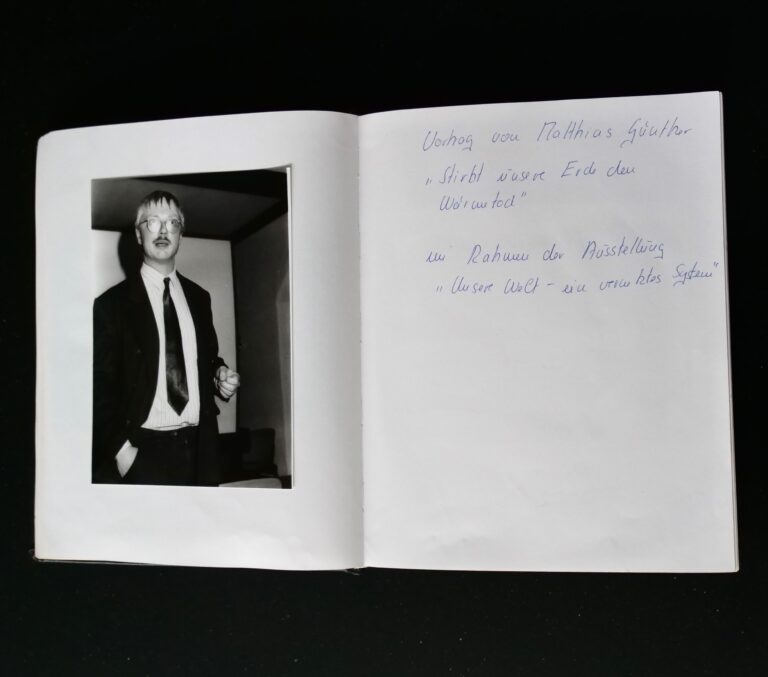 Vortrag von Matthias Günther
„Stirbt unsere Erde den
Wärmetod"
im Rahmen der Ausstellung
„Unsere Welt - ein vernetztes System"